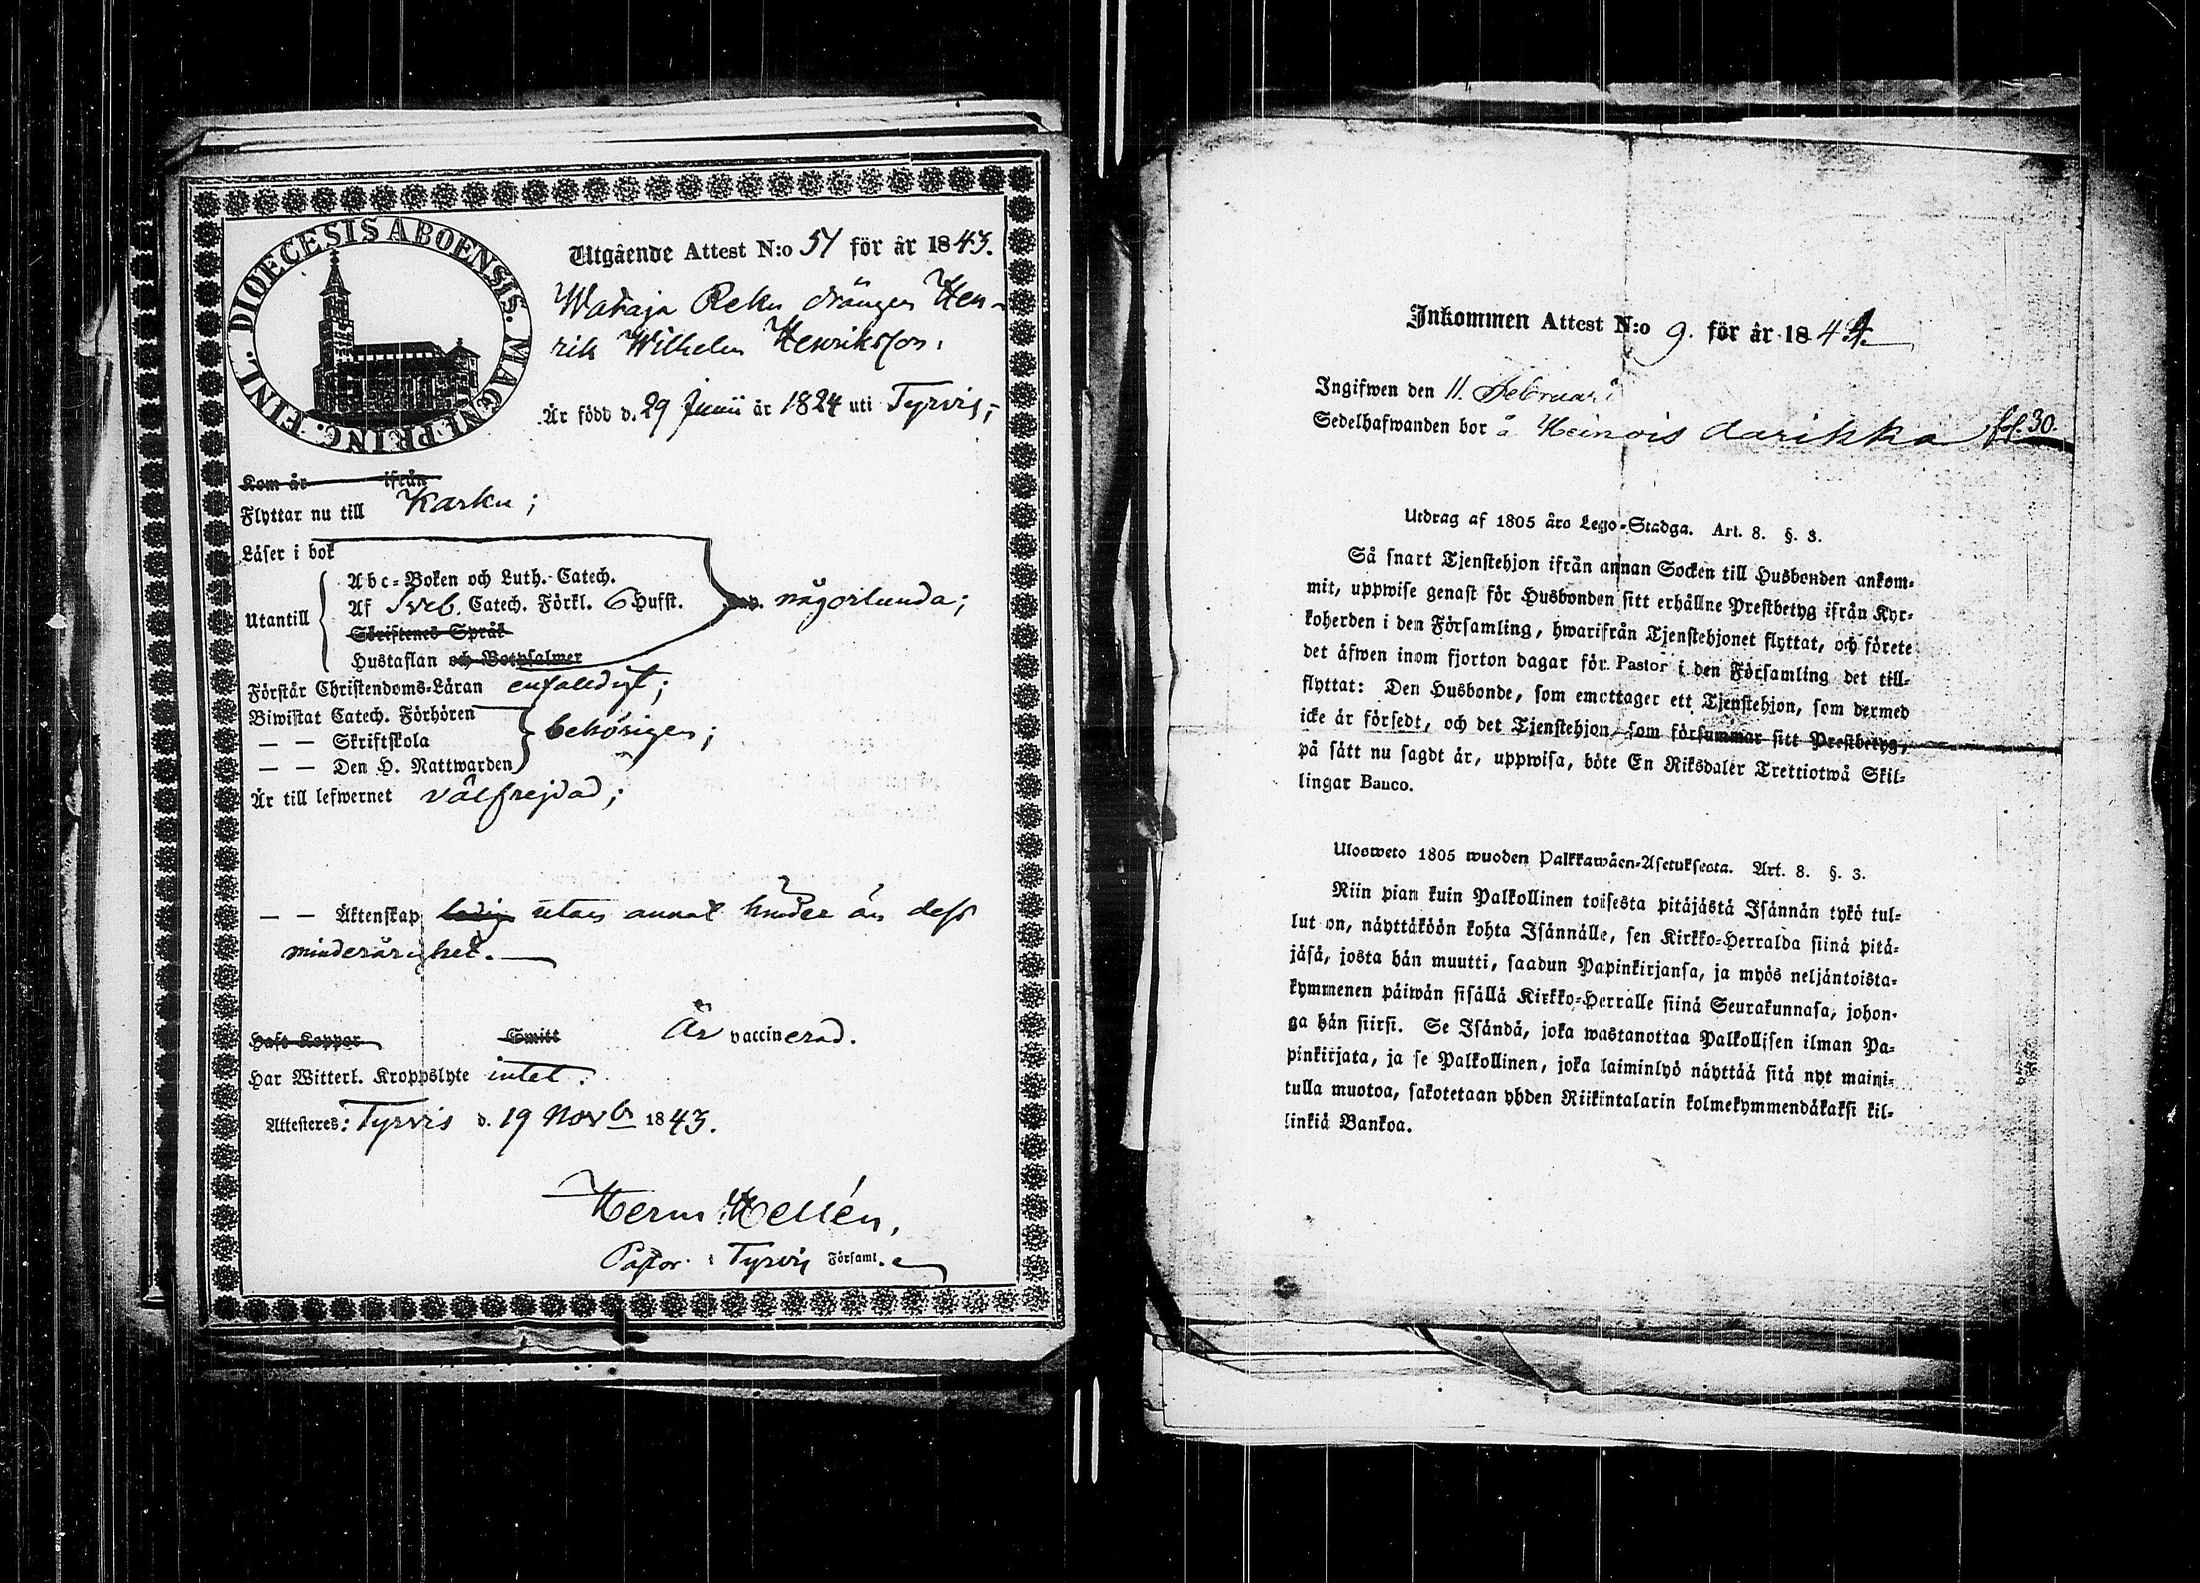 DIOECESIS ABOENSIS. MAGNI PRINC. FINL.
Utgående Attest N:o 51 för år 1843.
Wataja Reku drängen Hen-
rik Wilhelm Henriksson.
Är född d. 29 Junii år 1824 uti Tyrvis;
Kom år ifrån
Flyttar nu till Karku;
Läser i bok
Abc-Boken och Luth. Catech.
Utantill Af Sveb. Catech. Förkl. 6 Hufst. någorlunda;
Skriftenes Språk
Hustaflan och Botpsalmer
Förstår Christendoms-Läran enfaldigt;
Biwistat Catech. Förhören
— — Skriftskola behörigen;
— — Den H. Nattwarden
Är till lefwernet välfrejdad;
— — Äktenskap ledig utan annat hinder än dess
minderårighet.
Haft Koppor Smitt Är vaccinerad.
Har Witterl. Kroppslyte intet.
Attesteres: Tyrvis d. 19 Novbr 1843.
Herm Hellén,
Pastor i Tyrvis Församl.
Inkommen Attest N:o 9. för år 1844
Ingifwen den 11. Februari
Sedelhafwanden bor å Heinois Aarikka fol. 30.
Utdrag af 1805 års Lego-Stadga. Art. 8. §. 3.
Så snart Tjenstehjon ifrån annan Socken till Husbonden ankom-
mit, uppwise genast för Husbonden sitt erhållne Prestbetyg ifrån Kyr-
koherden i den Församling, hwarifrån Tjenstehjonet flyttat, och förete
det äfwen inom fjorton dagar för Pastor i den Församling det till-
flyttat: Den Husbonde, som emottager ett Tjenstehjon, som dermed
icke är försedt, och det Tjenstehjon, som försummar sitt Prestbetyg,
på sätt nu sagdt är, uppwisa, böte En Riksdaler Trettiotwå Skil-
lingar Banco.
Ulosweto 1805 wuoden Palkkawäen-Asetuksesta. Art. 8. §. 3.
Niin pian kuin Palkollinen toisesta pitäjästä Isännän tykö tul-
lut on, näyttäköön kohta Isännälle, sen Kirkko-Herralda siinä pitä-
jäsä, josta hän muutti, saadun Papinkirjansa, ja myös neljäntoista-
kymmenen päiwän sisällä Kirkko-Herralle siinä Seurakunnasa, johon-
ga hän siirsi. Se Isändä, joka wastanottaa Palkollisen ilman Pa-
pinkirjata, ja se Palkollinen, joka laiminlyö näyttää sitä nyt maini-
tulla muotoa, sakotetaan yhden Riikintalarin kolmekymmendäkaksi kil-
linkiä Bankoa.